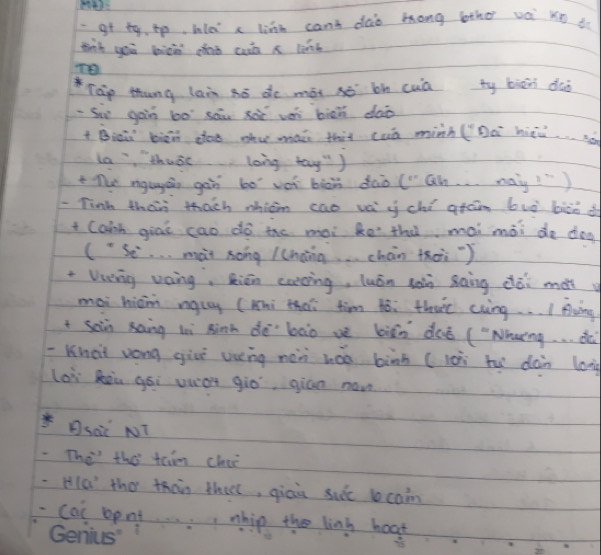 MB):
- gt tg, tp, h/a' x lính canh đảo trong bthơ và
tình yêu biển đảo của x lính
TB
* Tập trung làm rõ đc một số bh của ty biển đảo
- Sự gắn bó sâu sắc với biển đảo
+ Biểu biển đảo như máu thịt của mình ("Đá hiểu ...
là", "thuộc ... lòng tay")
+ Tự nguyện gắn bó với biển đảo ("Gh... này!")
- Tinh thần trách nhiệm cao và ý chí qtâm bvệ biển
+ Cảnh giác cao độ trc mọi kẻ thù, mọi mối đe dọa
("Sẽ ... mặt sóng / Chẳng ... chân trời")
+ Vững vàng, kiên cường, luôn sẵn sàng đối mặt
mọi hiểm nguy (Khi trái tim tôi thức cùng ... /
+ sẵn sàng hi sinh để bảo vệ biển đảo ("Nhưng ...
- Khát vọng giữ vững nền hoà bình (lời tự dặn lòng
lời kêu gọi vượt gió, gian nan
* Đsắc NT
- Thể thơ tám chữ
- H/a' thơ chân thực, giàu sức bcảm
- Các bpnt ....., nhịp thơ linh hoạt
Genius